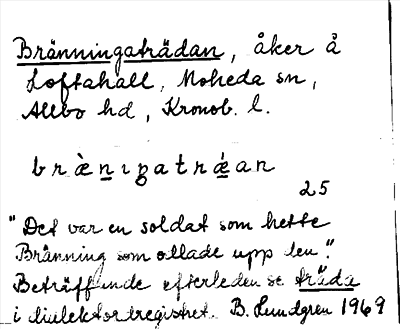 Brånningaträdan, åker å
Loftahall, Moheda sn,
Allbo hd, Kronob. l.
bræ̀nıŋatrǽan
25
"Det var en soldat som hette
Brånning som ollade upp den".
Beträffande efterleden se träda
i dialektordregistret. B. Lundgren 1969